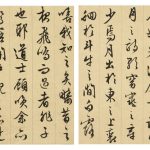 月之詩歌窈窕之章
少焉月出於東山之上
徊於斗牛之間白露
嗚呼噫嘻我知之矣疇昔之
夜飛鳴而過我者非子
也耶道士顧笑余亦